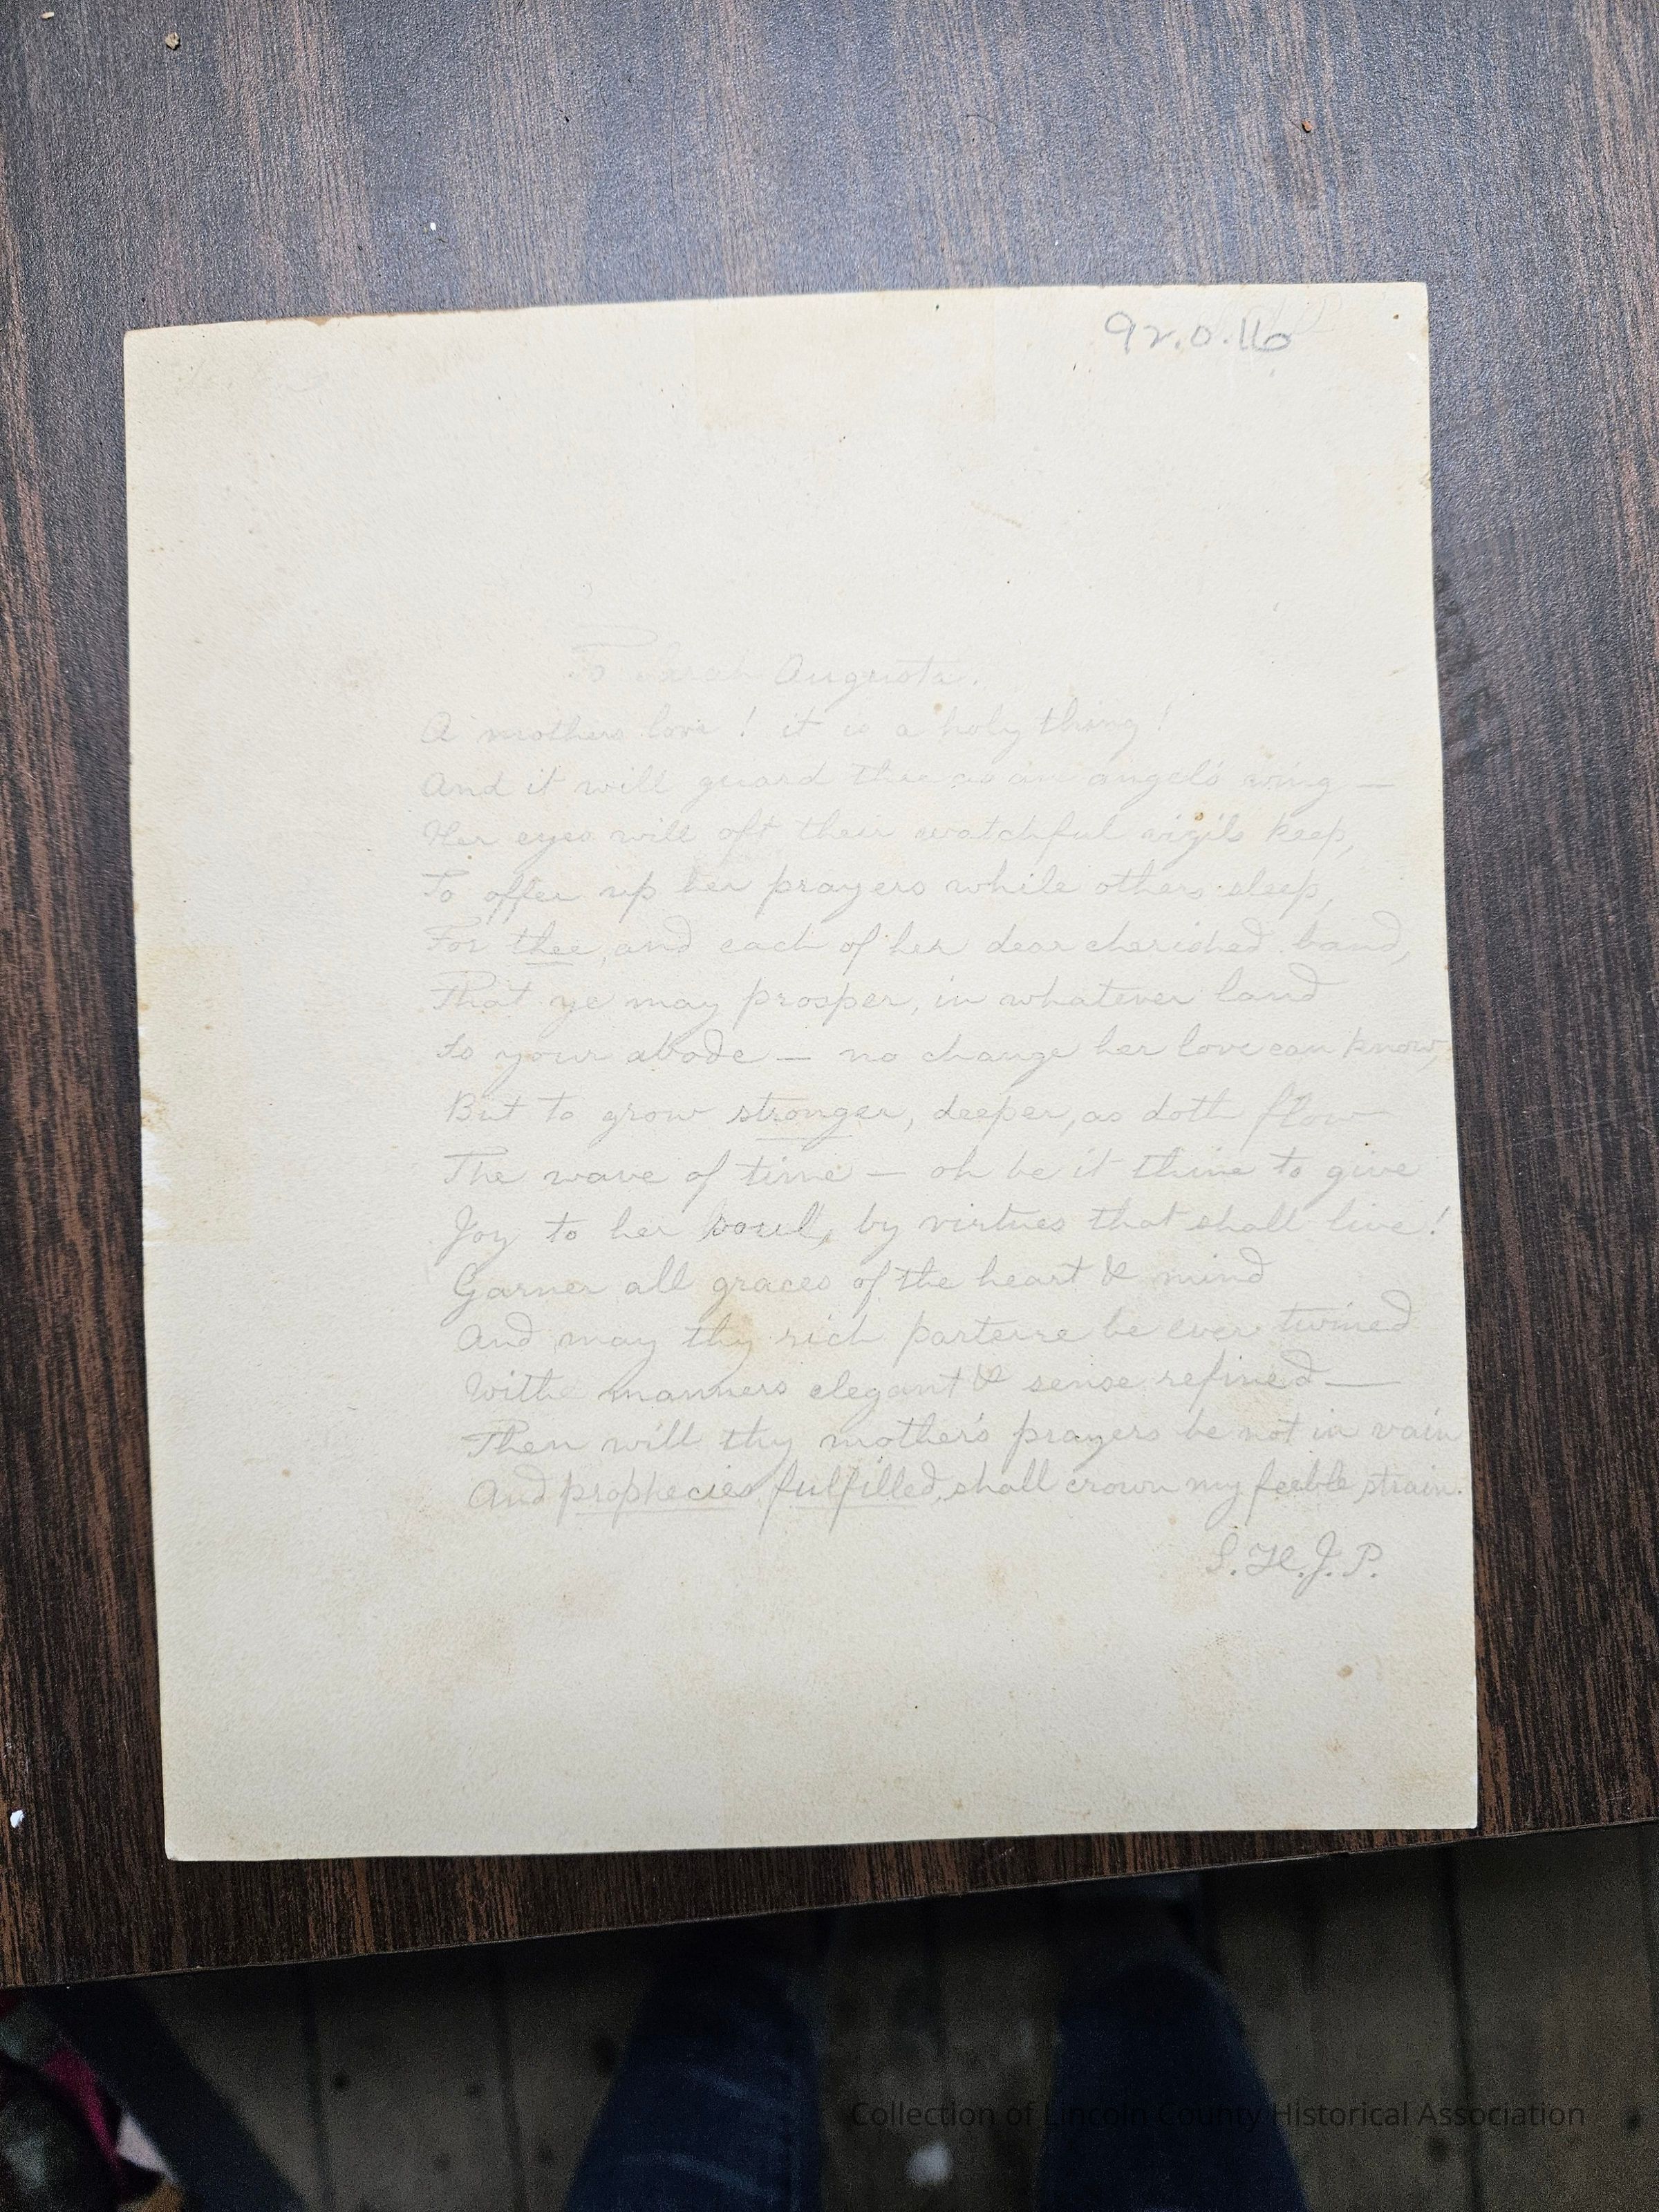 92.0.16
To Sarah Augusta.
A mothers love! it is a holy thing!
And it will guard thee as an angel's wing —
Her eyes will oft their watchful vigils keep,
To offer up her prayers while others sleep,
For thee, and each of her dear cherished band,
That ye may prosper, in whatever land
Is your abode — no change her love can know,
But to grow stronger, deeper, as doth flow
The wave of time — oh be it thine to give
Joy to her soul, by virtues that shall live!
Garner all graces of the heart & mind
And may thy rich parterre be ever twined
With manners elegant & sense refined —
Then will thy mother's prayers be not in vain
And prophecies fulfilled, shall crown my feeble strain.
S.H.J.P.
Collection of Lincoln County Historical Association